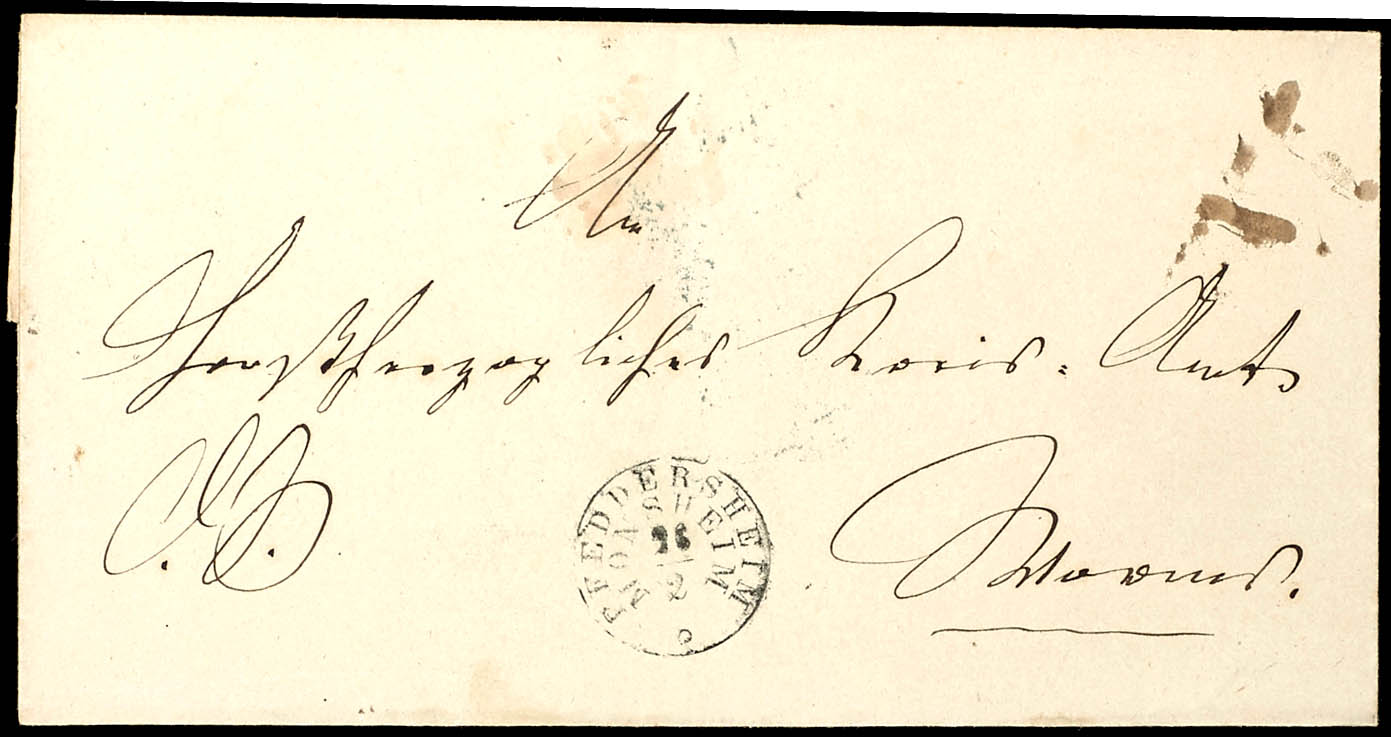 An
Großherzogliches Kreis-Amt
D. S.
Worms.
PFEDDERSHEIM
MONSHEIM
26
2